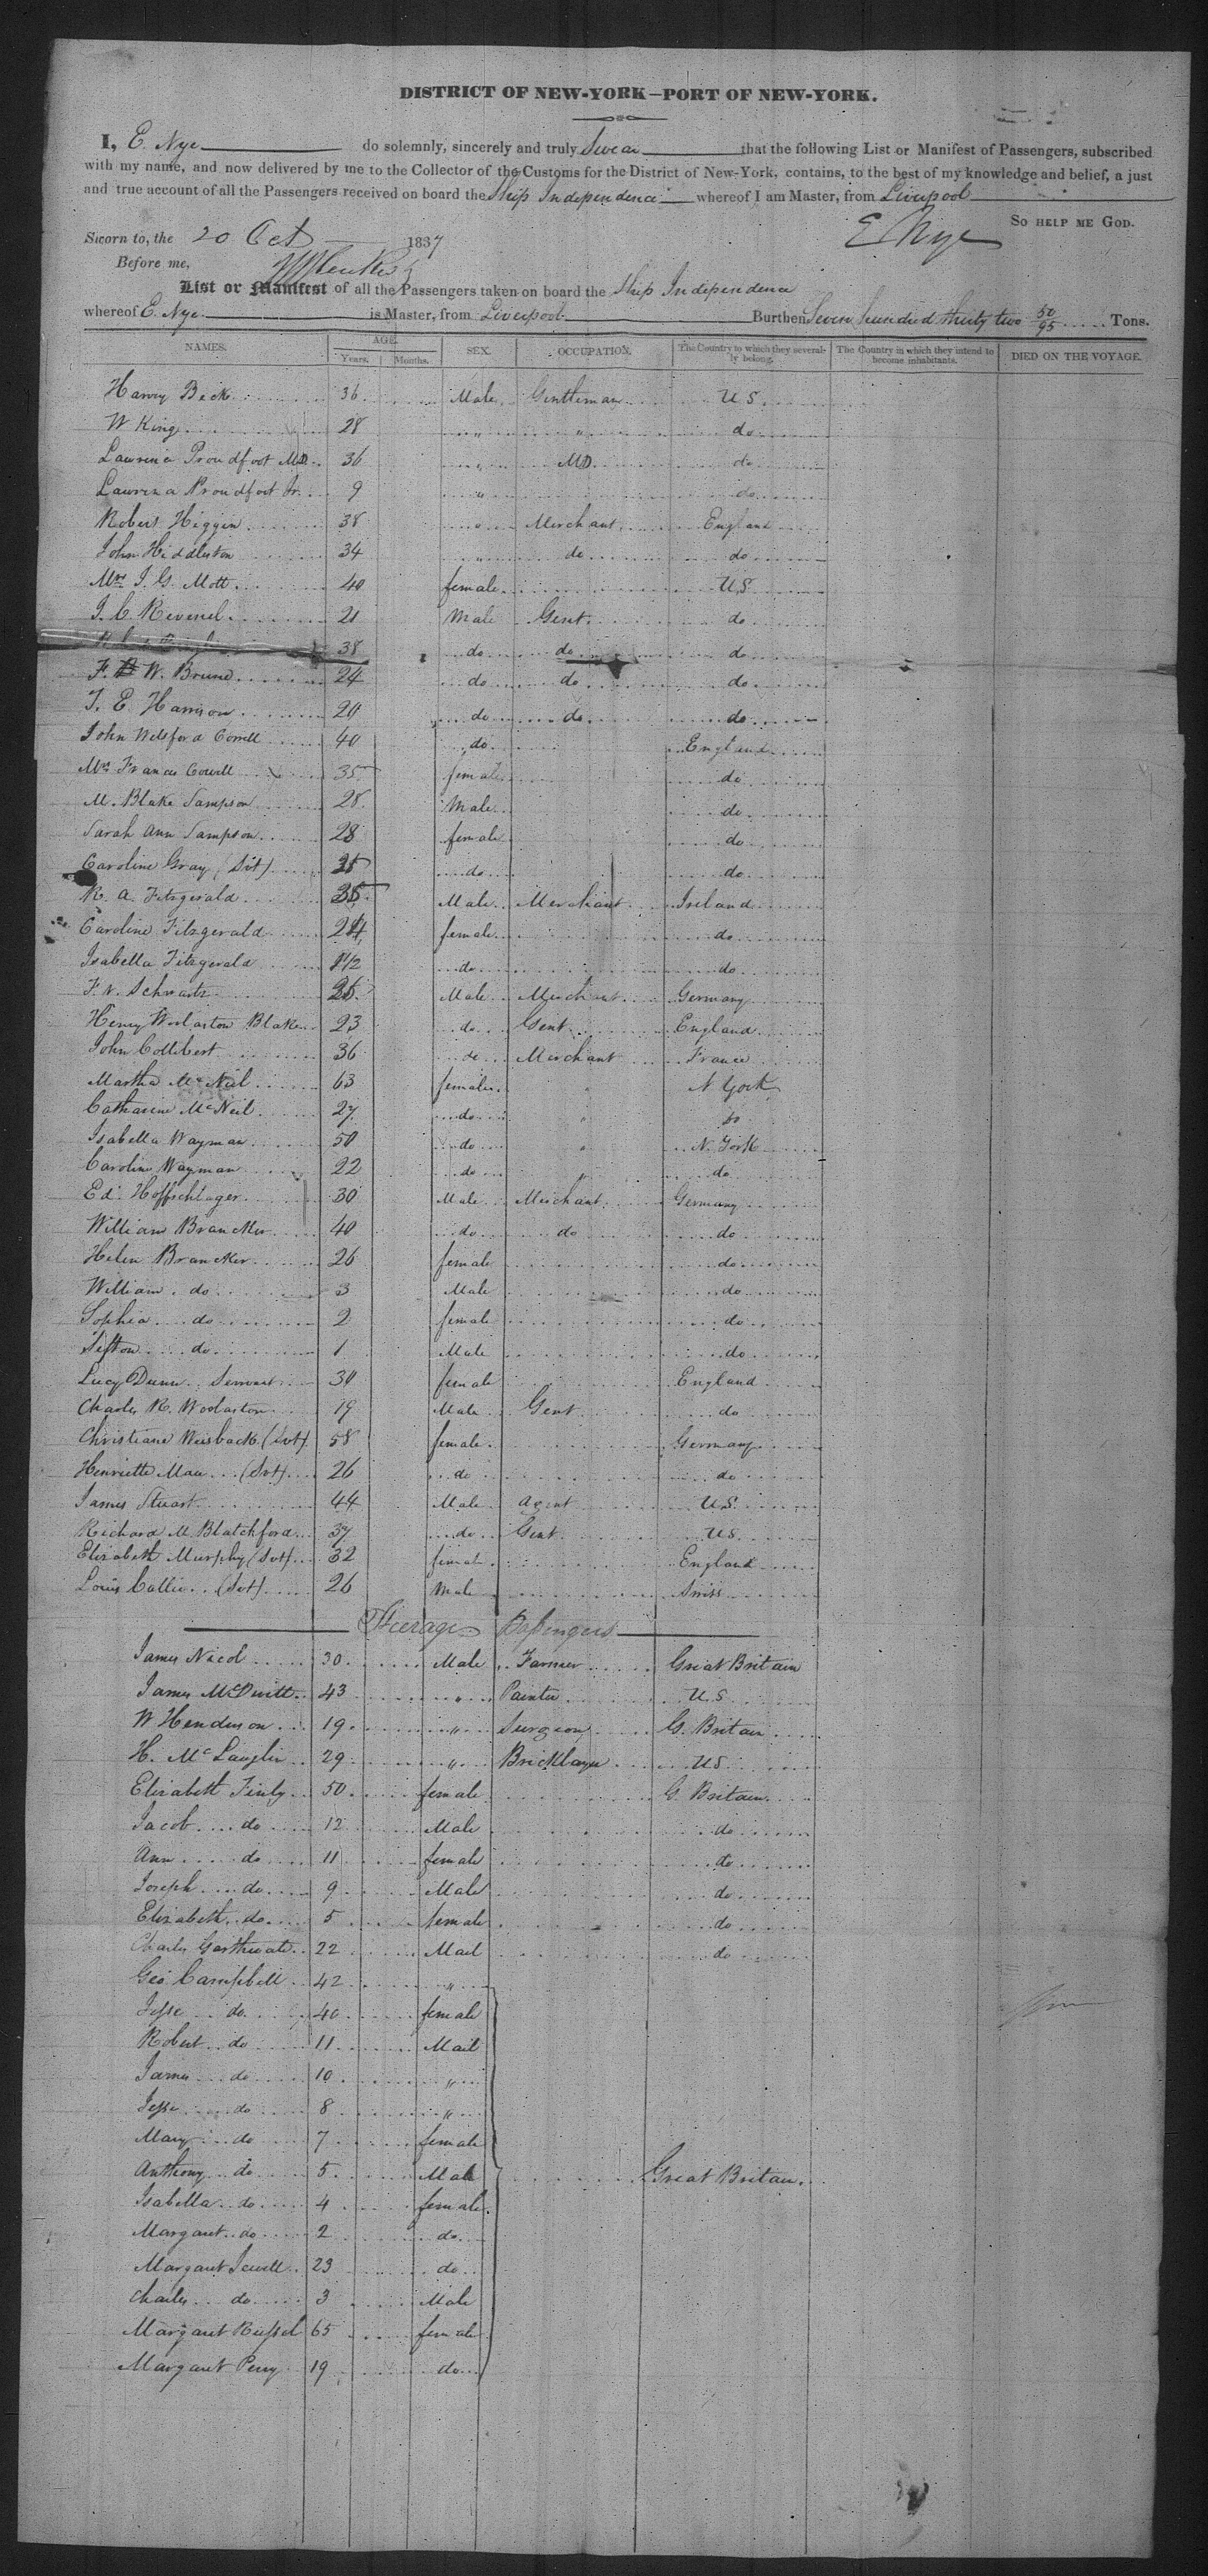 DISTRICT OF NEW-YORK—PORT OF NEW-YORK.
I, E. Nye do solemnly, sincerely and truly Swear that the following List or Manifest of Passengers, subscribed
with my name, and now delivered by me to the Collector of the Customs for the District of New-York, contains, to the best of my knowledge and belief, a just
and true account of all the Passengers received on board the Ship Independence whereof I am Master, from Liverpool
So help me God.
Sworn to, the 20 Oct 1837 E Nye
Before me,
List or Manifest of all the Passengers taken on board the Ship Independence
whereof E. Nye is Master, from Liverpool Burthen Seven hundred thirty two 50/95 Tons.
NAMES. AGE. Years. Months. SEX. OCCUPATION. The Country to which they severally belong. The Country in which they intend to become inhabitants. DIED ON THE VOYAGE.
Harvey Beck 36 Male Gentleman U S
W King 28 " " do
Lawrence Proudfoot MD 36 " MD do
Lawrence Proudfoot Jr. 9 " do
Robert Higgin 38 " Merchant England
John Hiddleston 34 " do do
Mrs J. G. Mott 40 female U S
J. C. Revenel 21 Male Gent. do
38 do do do
F. W. Brune 24 do do do
T. E. Harrison 20 do do do
John Welsford Cowell 40 do England
Mrs Frances Cowell 35 female do
M. Blake Sampson 28 Male do
Sarah Ann Sampson 28 female do
Caroline Gray (Svt) do do
R. A. Fitzgerald 35 Male Merchant Ireland
Caroline Fitzgerald 24 female do
Isabella Fitzgerald 1 1/2 do do
F. V. Schwartz Male Merchant Germany
Henry Woolaston Blake 23 do Gent England
John Collibert 36 do Merchant France
Martha McNeil 63 females " N York
Catharine McNeil 27 do " do
Isabella Wayman 50 do " N. York
Caroline Wayman 22 do " do
Ed. Hoffschlager 30 Male Merchant Germany
William Brancker 40 do do do
Helen Brancker 26 female do
William do 3 Male do
Sophia do 2 female do
Sefton do 1 Male do
Lucy Dunn Servant 30 female England
Charles R. Woolaston 19 Male Gent do
Christiane Weisback (Svt) 58 female Germany
Henriette Mau (Svt) 26 do do
James Stuart 44 Male Agent U.S.
Richard M. Blatchford 37 do Gent U S
Elizabeth Murphy (Svt) 32 female England
Louis Callie (Svt) 26 Male Swiss
Steerage Passengers
James Nicol 30 Male Farmer Great Britain
James McDevitt 43 " Painter U. S
W Henderson 19 " Surgeon G. Britain
H. McLauglin 29 " Bricklayer U S
Elizabeth Finly 50 female G. Britain
Jacob do 12 Male do
Ann do 11 female do
Joseph do 9 Male do
Elizabeth do 5 female do
Charles Garthwate 22 Mail do
Geo Campbell 42 "
Jesse do 40 female
Robert do 11 Mail
James do 10 "
Jesse do 8 "
Mary do 7 female
Anthony do 5 Male Great Britain.
Isabella do 4 female
Margaret do 2 do
Margaret Jewell 23 do
Charles do 3 Male
Margaret Russel 65 female
Margaret Perry 19 do